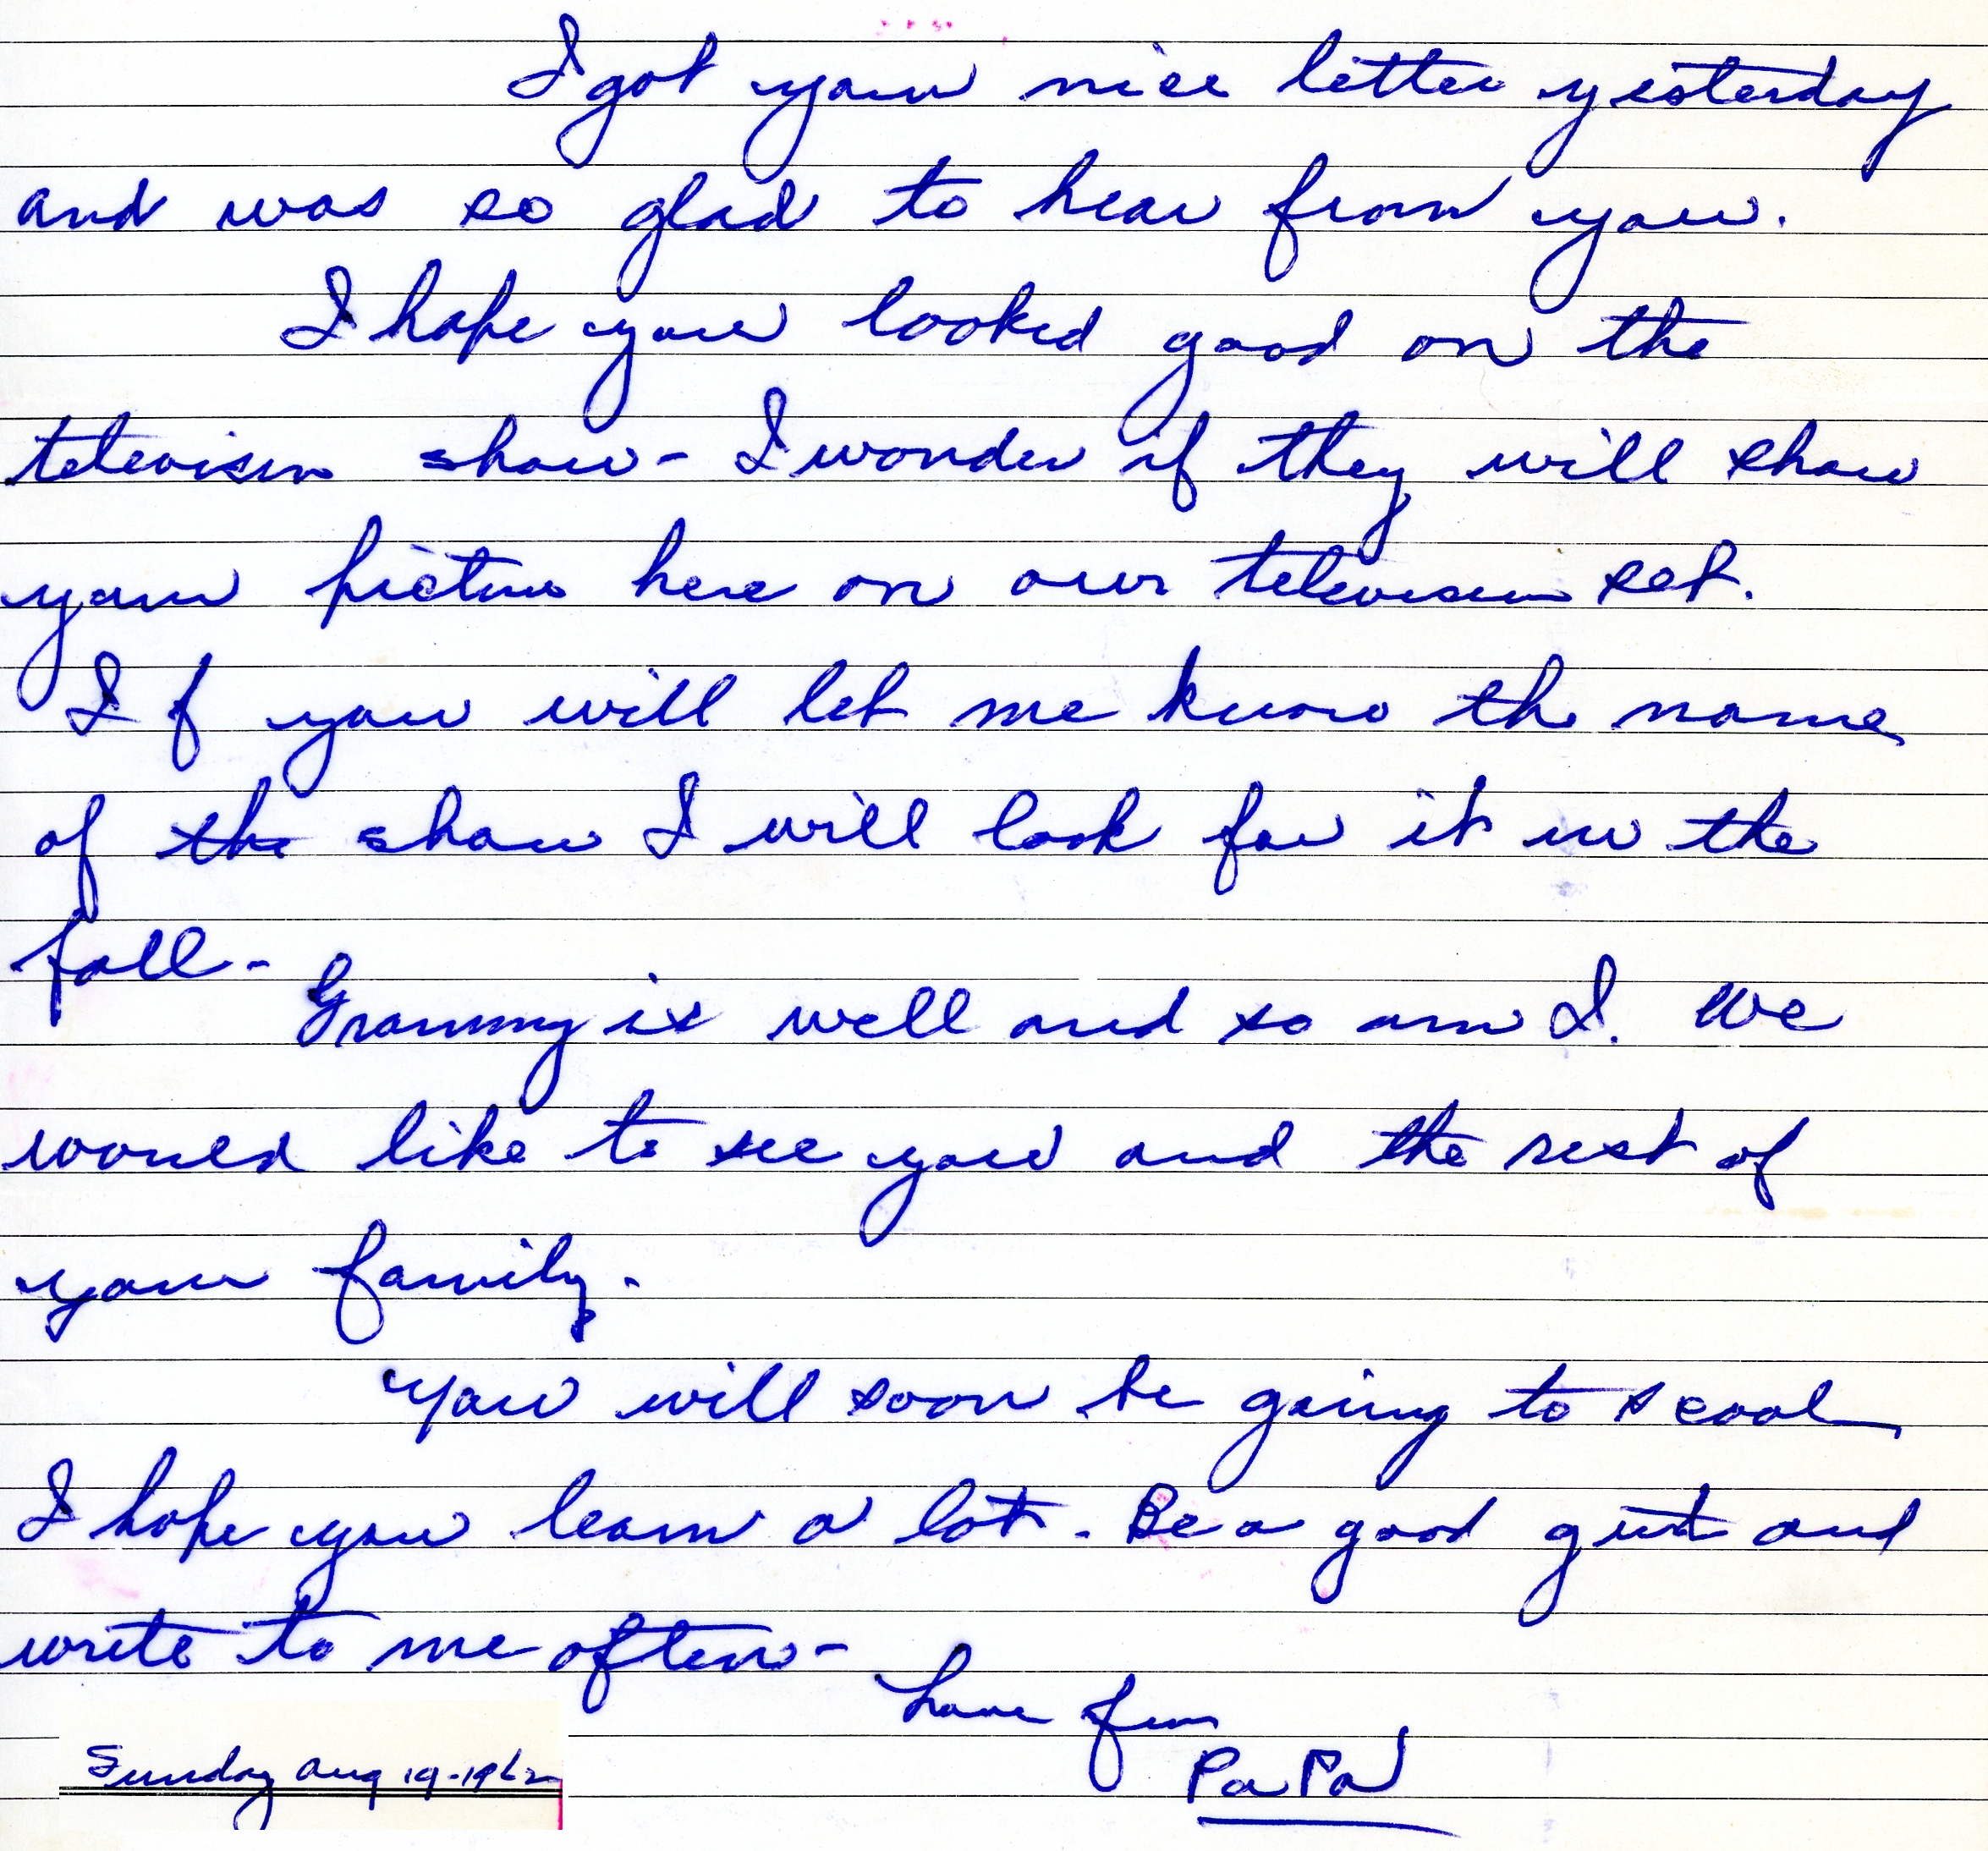 I got your nice letter yesterday
and was so glad to hear from you.
I hope you looked good on the
television show - I wonder if they will show
your picture here on our television set.
If you will let me know the name
of the show I will look for it in the
fall -
Grammy is well and so am I. We
would like to see you and the rest of
your family.
You will soon be going to scool
I hope you learn a lot. Be a good girl and
write to me often -
have fun
PaPa
Sunday Aug 19-1962